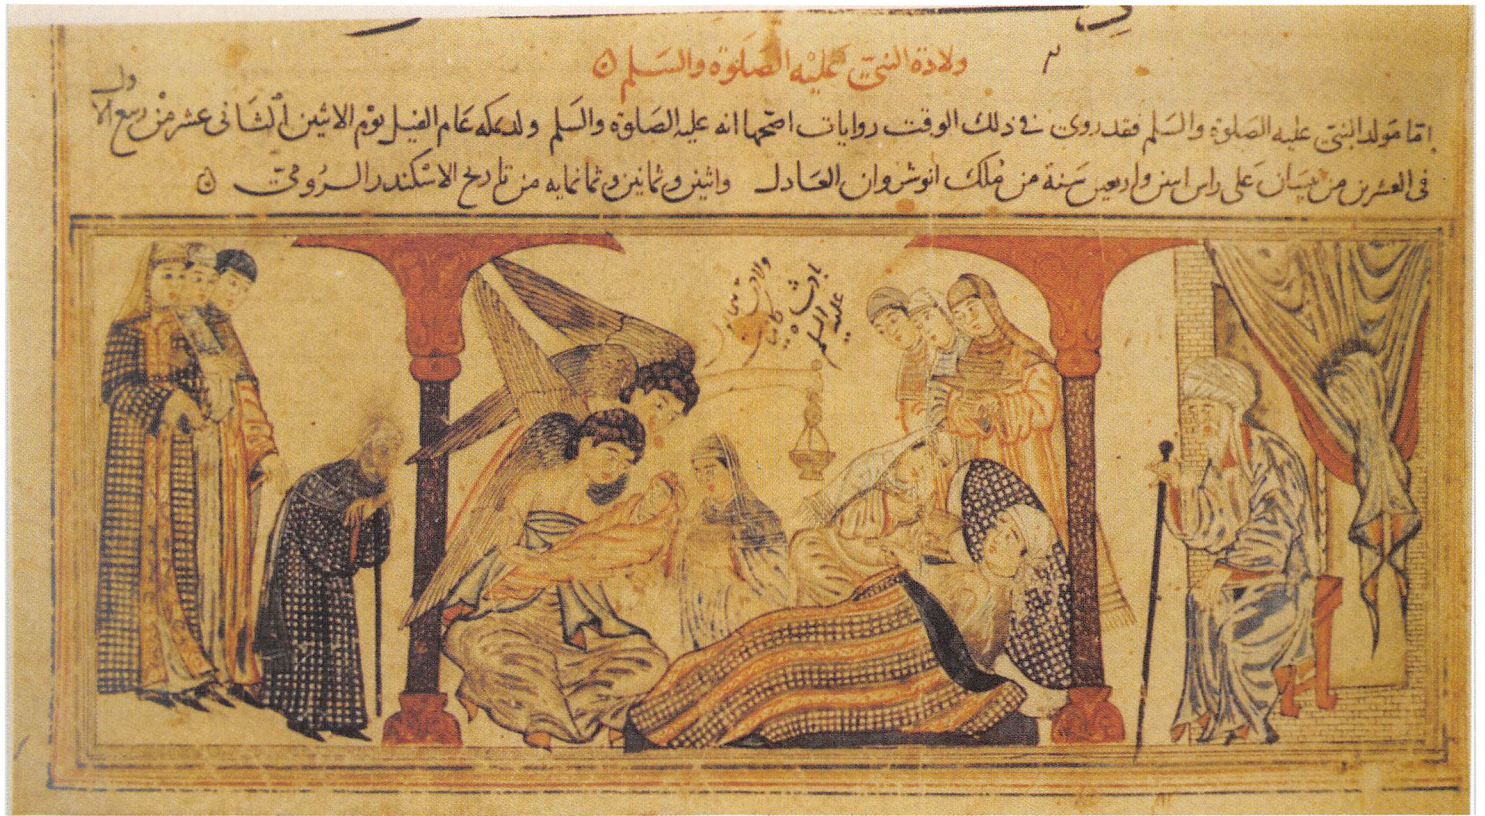 ولادة النبي عليه الصلوة والسلم
اما مولد النبي عليه الصلوة والسلم فقد روى في ذلك الوقت روايات اصحها انه عليه الصلوة والسلم ولد بمكه عام الفيل يوم الاثنين الثانى عشر من ربيع الاول
فى العشرين من نيسان على راس اثنين واربعين سنة من ملك انوشروان العادل واثنين وثمانين وثمانمايه من تاريخ الاسكندر الرومي
ولادت
عليه السلم